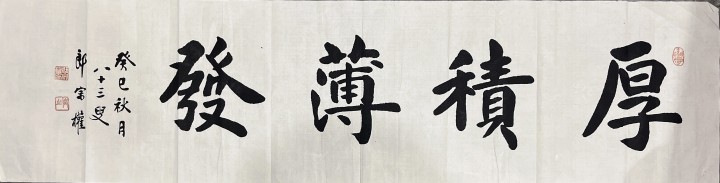 厚積薄發
癸巳秋月
八十三叟
郎富權